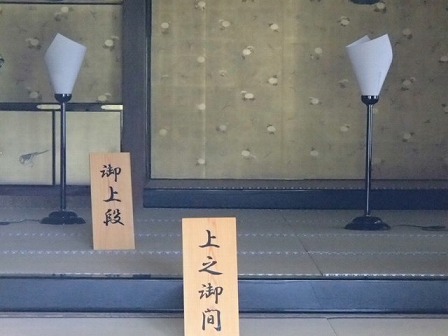 御上段
上之御間